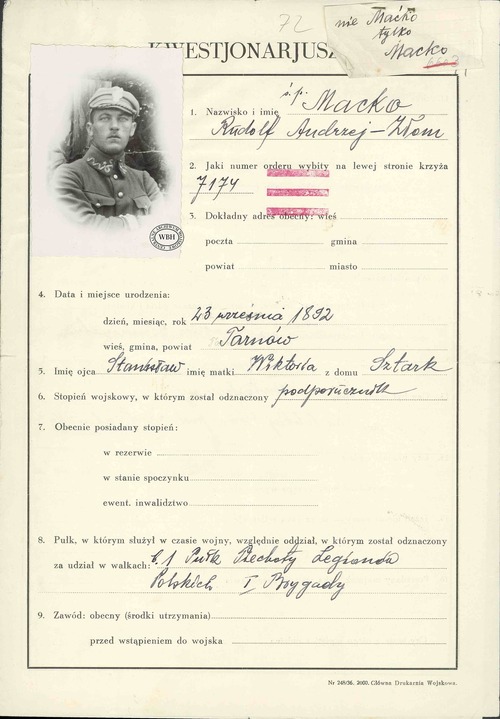 72
nie Maćko
tylko
Macko
KWESTJONARJUSZ
ś. p. Macko
1. Nazwisko i imię
Rudolf Andrzej-Złom
2. Jaki numer orderu wybity na lewej stronie krzyża
7174
3. Dokładny adres obecny: wieś
poczta gmina
powiat miasto
WBH
4. Data i miejsce urodzenia:
dzień, miesiąc, rok 23 września 1892
wieś, gmina, powiat Tarnów
5. Imię ojca Stanisław imię matki Wiktoria z domu Sztark
6. Stopień wojskowy, w którym został odznaczony podporucznik
7. Obecnie posiadany stopień:
w rezerwie
w stanie spoczynku
ewent. inwalidztwo
8. Pułk, w którym służył w czasie wojny, względnie oddział, w którym został odznaczony
za udział w walkach: b. 1 Pułk Piechoty Legionów
Polskich I Brygady
9. Zawód: obecny (środki utrzymania)
przed wstąpieniem do wojska
Nr 248/36. 2000. Główna Drukarnia Wojskowa.